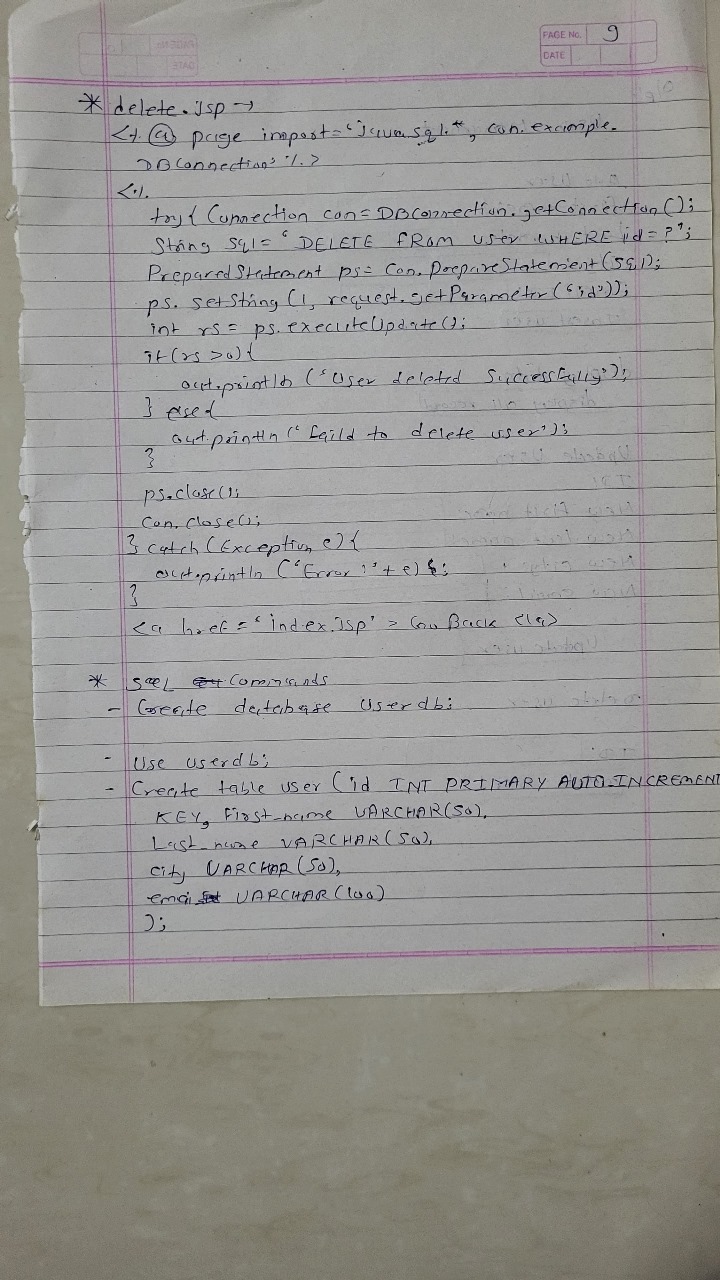 PAGE No. 9
DATE
* delete.jsp →
<%@ page import="java.sql.*, con.example.
DBConnection" %>
<%
try{ Connection con = DBConnection.getConnection();
String sql = "DELETE FROM user WHERE id = ?";
PreparedStatement ps = con.prepareStatement(sql);
ps.setString(1, request.getParameter("id"));
int rs = ps.executeUpdate();
if(rs >0){
out.println("User deleted Successfully");
} else{
out.println("faild to delete user");
}
ps.close();
con.close();
} catch (Exception e){
out.println("Error:"+e);
}
<a href = "index.jsp" > Go Back </a>
* SQL Commands
- Create database Userdb;
- Use userdb;
- Create table user (id INT PRIMARY AUTO_INCREMENT
KEY, First_name VARCHAR(50),
Last_name VARCHAR(50),
city VARCHAR(50),
emai VARCHAR(100)
);